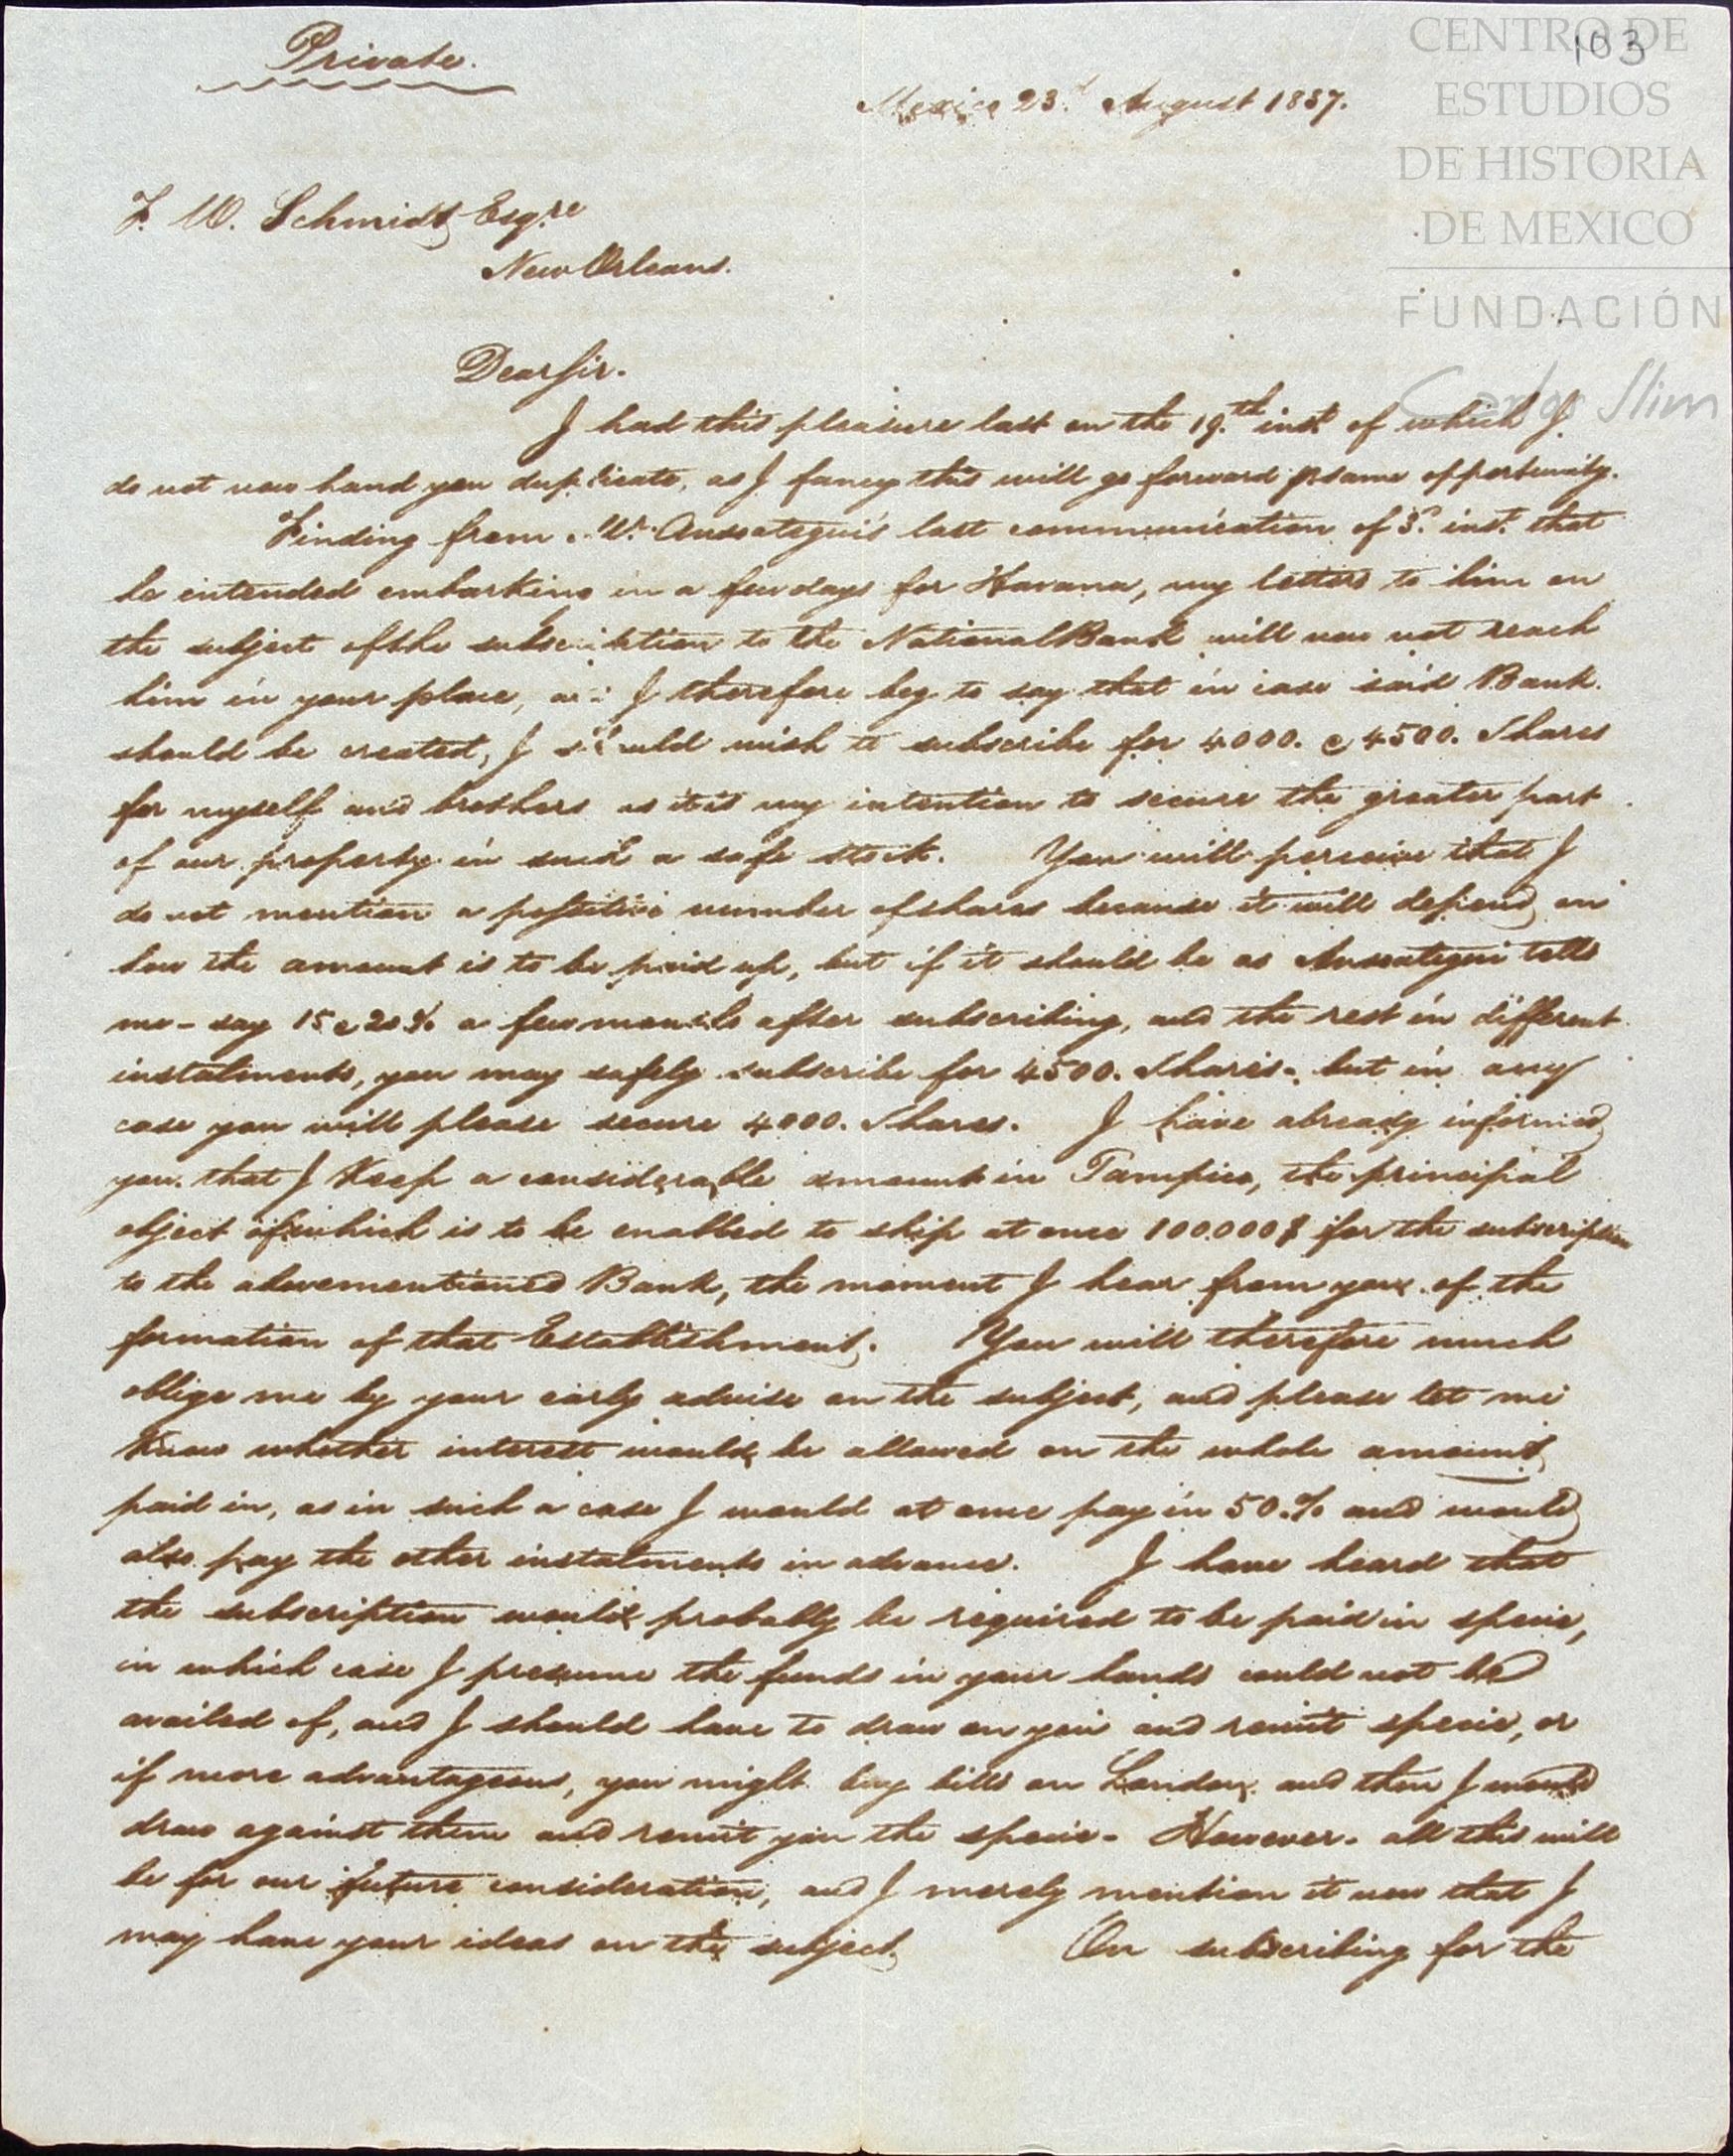 Private.
CENTRO DE
103
ESTUDIOS
DE HISTORIA
DE MEXICO
FUNDACIÓN
Carlos Slim
Mexico 23.d August 1837.
F. W. Schmidt Esq.re
New Orleans.
Dear Sir.
I had this pleasure last on the 19.th inst. of which I
do not now hand you duplicate, as I fancy this will go forward p same opportunity.
Finding from Mr. Aussategui's last communication of 3.d inst. that
he intended embarking in a few days for Havana, my letters to him on
the subject of the subscription to the National Bank will now not reach
him in your place, and I therefore beg to say that in case said Bank
should be created, I should wish to subscribe for 4000. @ 4500. Shares
for myself and brothers as it is my intention to secure the greater part
of our property in such a safe stock. You will perceive that I
do not mention a positive number of shares because it will depend on
how the amount is to be paid up, but if it should be as Aussategui tells
me - say 15 @ 20% a few months after subscribing, and the rest in different
instalments, you may safely subscribe for 4500. Shares - but in any
case you will please secure 4000. Shares. I have already informed
you that I Keep a considerable amount in Tampico, the principal
object of which is to be enabled to ship at once 100.000$ for the subscription
to the abovementioned Bank, the moment I hear from you of the
formation of that Establishment. You will therefore much
oblige me by your early advise on the subject, and please let me
Know whether interest would be allowed on the whole amount
paid in, as in such a case I would at once pay in 50.% and would
also pay the other instalments in advance. I have heard that
the subscription would probably be required to be paid in specie,
in which case I presume the funds in your hands could not be
availed of, and I should have to draw on you and remit specie, or
if more advantageous, you might buy bills on London and then I would
draw against them and remit you the specie - However. all this will
be for our future consideration, and I merely mention it now that I
may have your ideas on the subject On subscribing for the